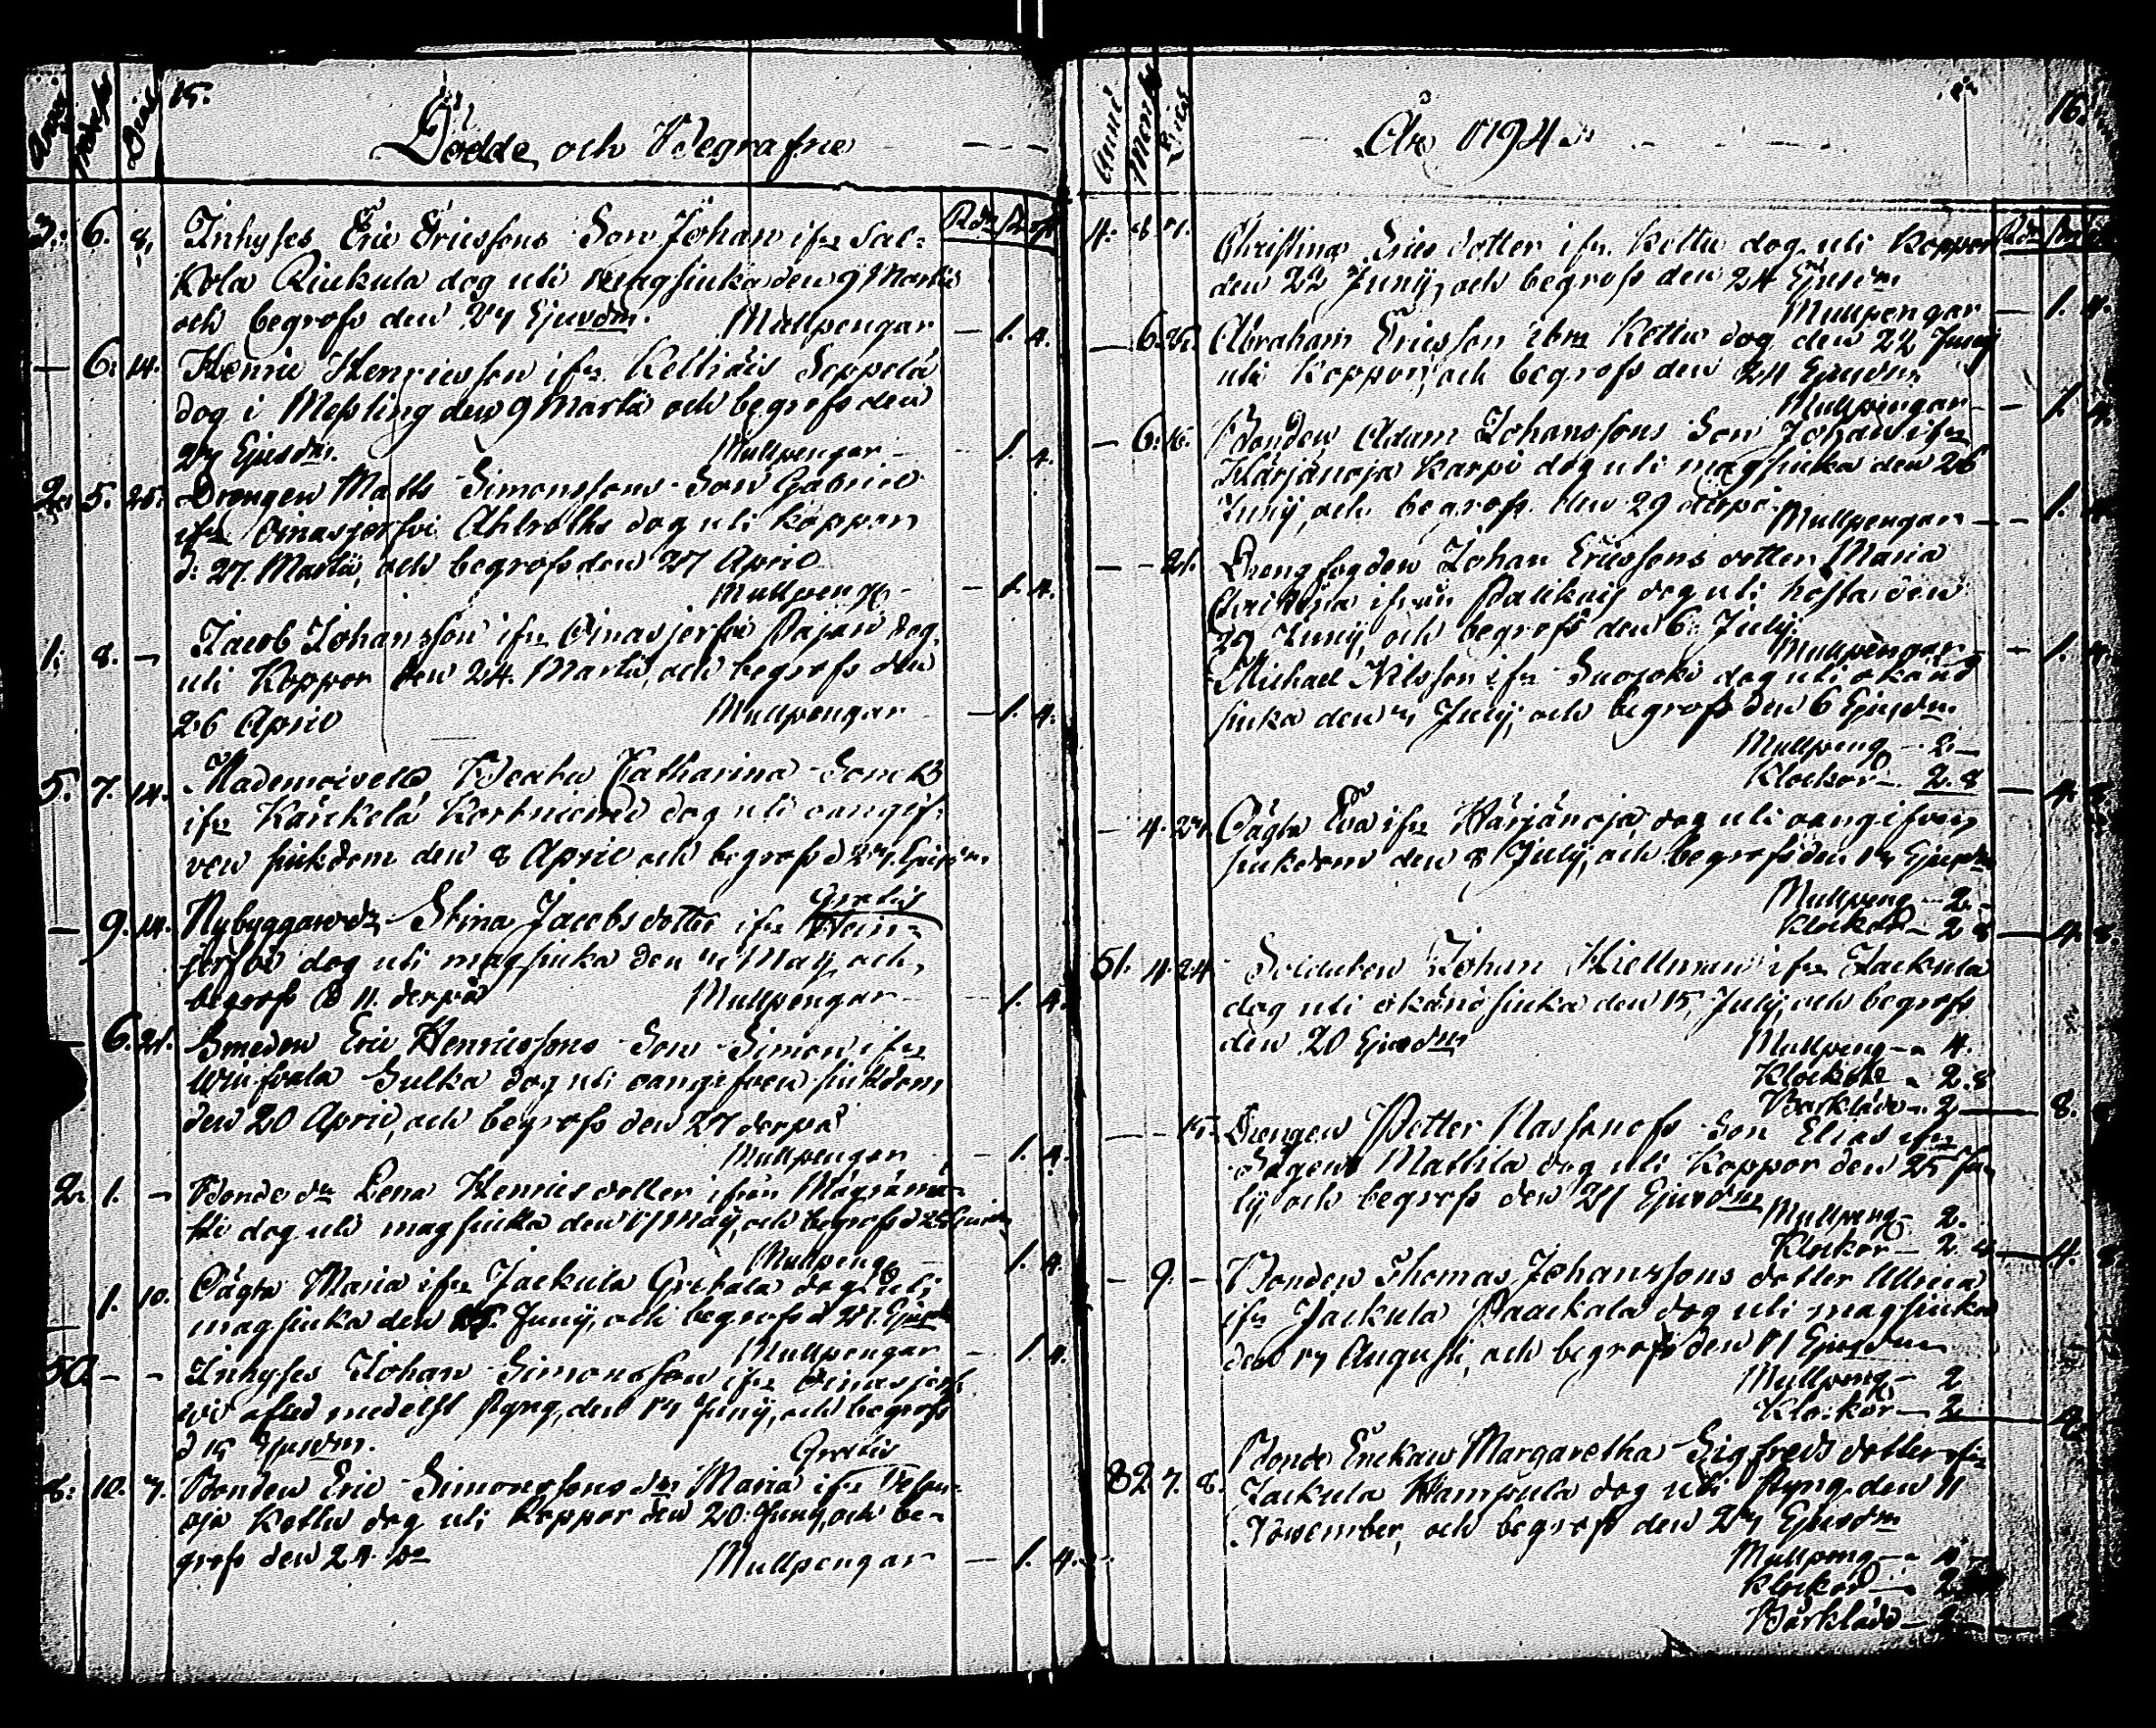 15.
Dödde och Begrafne
Rdr
3. 6. 8. Inhyses Eric Ericssons Son Johan ifrn Sal=
Kola Rinkula dog uti magsiuka den 9 Martii
och begrofs den 27 Ejusdm. Mullpengar — 1. 4.
— 6. 14. Henric Henricsson ifrn Seppelä
dog i Messling den 9 Martii och begrofs den
27 Ejusdm. Mullpengar — 1. 4.
2. 5. 25. Drengen Matts Simonssons Son Gabriel
ifrn Oinasjerfvi Ahlroths dog uti Koppor
d: 27. Martii, och begrofs den 27 April
Mullpeng — 1. 4.
1. 8. — Jacob Johansson ifrn Oinasjerfvi Pajari dog
uti Koppor den 24. Martii, och begrofs den
26 April Mullpengar — 1. 4.
5. 7. 14. Mademoiselle Beata Catharina
ifrn Kärckelä Kortniemi dog uti oangif=
ven siukdom den 8 April och begrofs d 27. Ejusdm.
Gratis
— 9. 14. Nybyggare dr Stina Jacobsdotter ifrn
jerfvi dog uti magsiuka den Maij, och
begrofs d 11. derpå Mullpengar — 1. 4.
— 6. 21. Smeden Eric Henricssons Son Simon ifrn
Sulka dog uti oangifven siukdom
den 20 April, och begrofs den 27 derpå
Mullpengar — 1. 4.
2. 1. — Bonde dr Lena Henricsdotter ifrån
dog uti magsiuka den 17 Maij, och begrofs d 25 Ejusdm
Mullpeng — 1. 4.
— 1. 10. Oägta Maria ifrn Jackula Grekola dog uti
magsiuka den 15. Junij, och begrofs d 21. Ejusd
Mullpengar — 1. 4.
50 — — Inhyses Johan Simonsson ifrn Oinasjerf=
vi afled medelst styng, den 17 Junij, och begrofs
d 15 Ejusdm. Gratis
8. 10. 7. Bonden Eric Simonssons dr Maria ifrn
oja Kettu dog uti Koppor den 20. Junij, och be=
grofs den 24. Mullpengar — 1. 4.
16.
År 1794.
Christina Ericsdotter ifrn Kettu dog uti Koppor
den 22 Junij, och begrofs den 24 Ejusdm
Mullpengar — 1. 4.
— 6. Abraham Ericsson ifrn Kettu dog den 22 Junij
uti Koppor, och begrofs den 24 Ejusdm
Mullpengar — 1. 4.
— 6. 16. Bonden Adam Johanssons Son Johan ifrn
Härjänoja Karpi dog uti magsiuka den 26
Junij, och begrofs den 29 derpå. Mullpengar — 1.
— — 21. Drengfogden Johan Ericssons dotter Maria
Christina ifrån dog uti hosta den
29 Junij, och begrofs den 6. July.
Mullpengar — 1. 4.
Michael Nilsson ifrn Suojoki dog uti okänd
siuka den July, och begrofs den 6 Ejusdm
Mullpeng — 2. —
Klockor — 2. 8 — 4. 8
— 4. 27. Oägta Eva ifrn Härjänoja dog uti oangifven
siukdom den 8 July, och begrofs den 17 Ejusdm
Mullpeng — 2. —
Klockor — 2 8 — 4. 8.
51. 4. 24. Soldaten Johan Hiellman ifrn Jackula
dog uti okänd siuka den 15, July, och begrofs
den 20 Ejusdm Mullpeng — 4.
Klockor — 2. 8
Bårkläde — 2 — 8.
— — 15. Drengen Petter Son Elias ifrn
Mattila dog uti Koppor den 25 Ju=
ly, och begrofs den 27 Ejusdm Mullpeng — 2.
Klockor — 2. 8 — 4. 8
— 9. — Bonden Thomas Johanssons dotter Ulrica
ifrn Jackula dog uti magsiuka
den 17 Augusti, och begrofs den Ejusdm
Mullpeng — 2
Klockor — 2
82 7. 8. Bonde Enckan Margaretha Sigfreds dotter ifrn
Jackula dog uti styng den 11
November, och begrofs den 27 Ejusdm
Mullpeng — 4
Klockor — 2
Bårkläde — 2